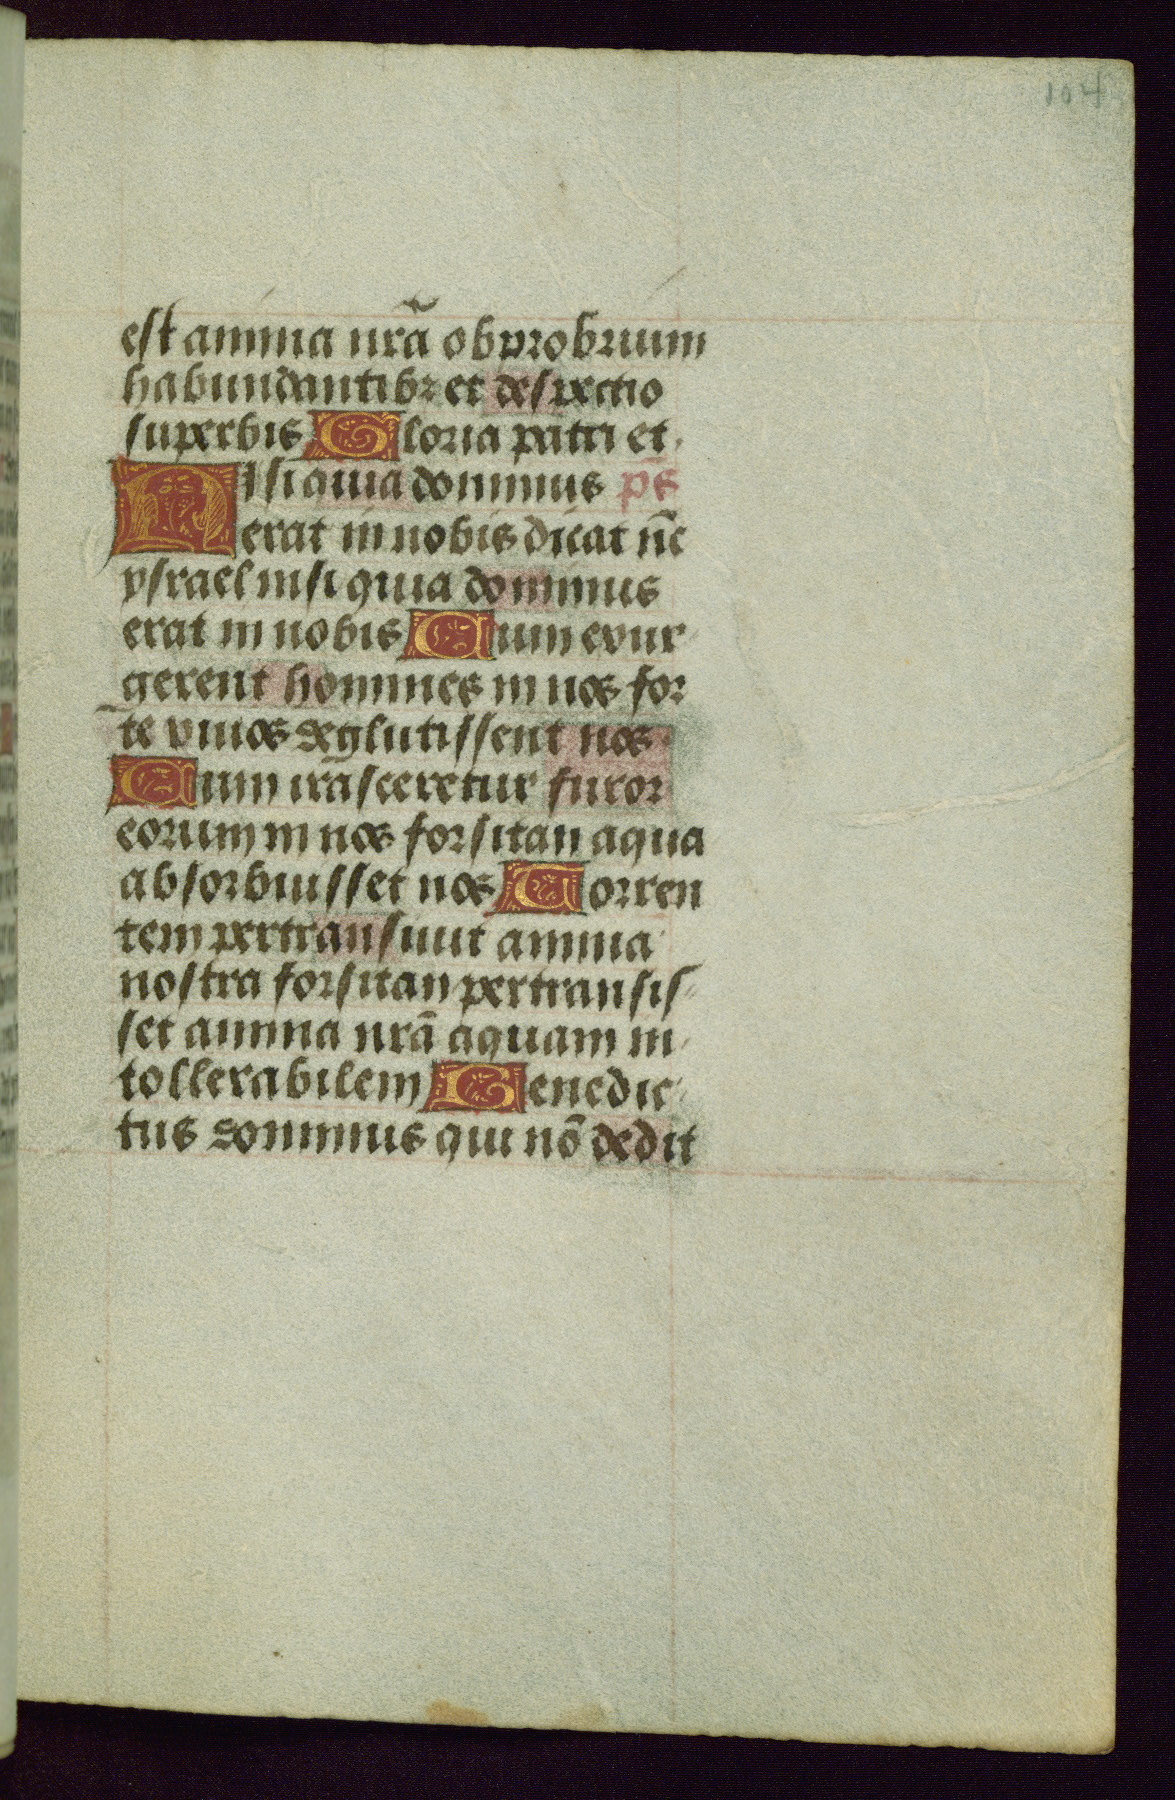 104
est anima nrã obprobrium
habundantibꝫ et despectio
superbis Gloria patri et
Nisi quia dominus ps̄
erat in nobis dicat nc̄
ysrael nisi quia dominus
erat in nobis Cum exur
gerent homines in nos for
te viuos deglutissent nos
Cum irasceretur furor
eorum in nos forsitan aqua
absorbuisset nos Torren
tem pertransiuit anima
nostra forsitan pertransis
set anima nrã aquam in
tollerabilem Benedic
tus dominus qui nõ dedit